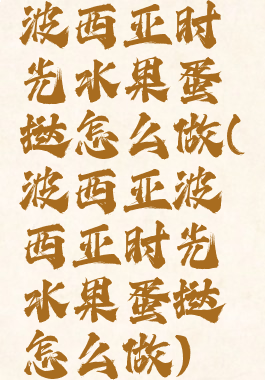 波西亚时
光水果蛋
挞怎么做(
波西亚波
西亚时光
水果蛋挞
怎么做)